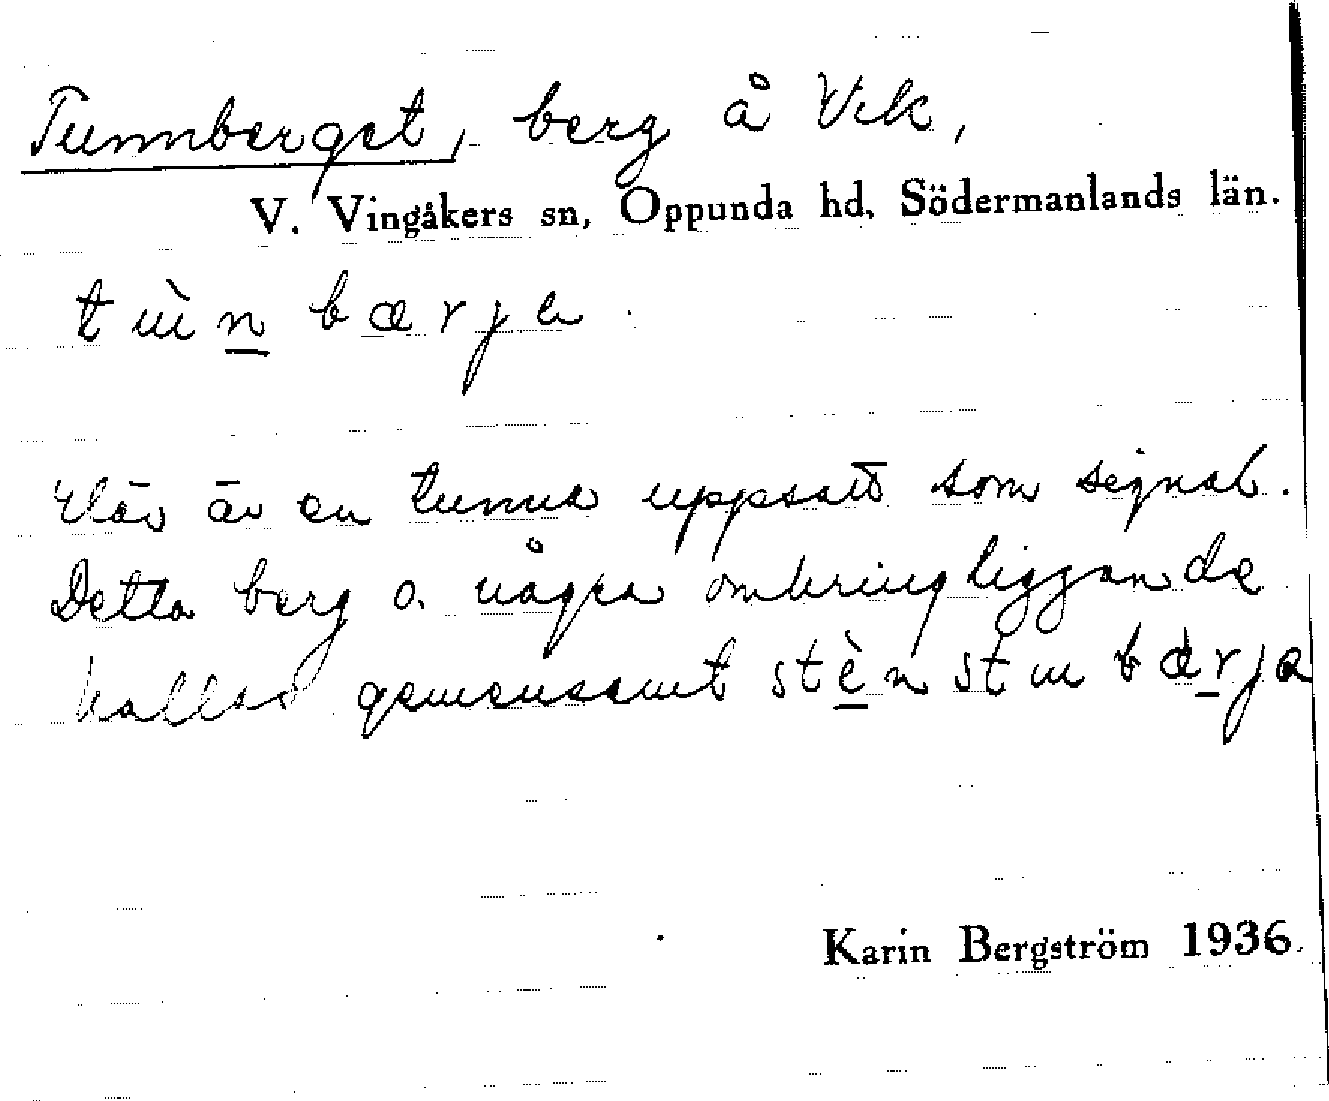 Tunnberget, berg å Vik,
V. Vingåkers sn, Oppunda hd, Södermanlands län.
tùn bærja
Här är en tunna uppsatt som signal.
Detta berg o. några omkringliggande
kallas gemensamt stènstubærja
Karin Bergström 1936.